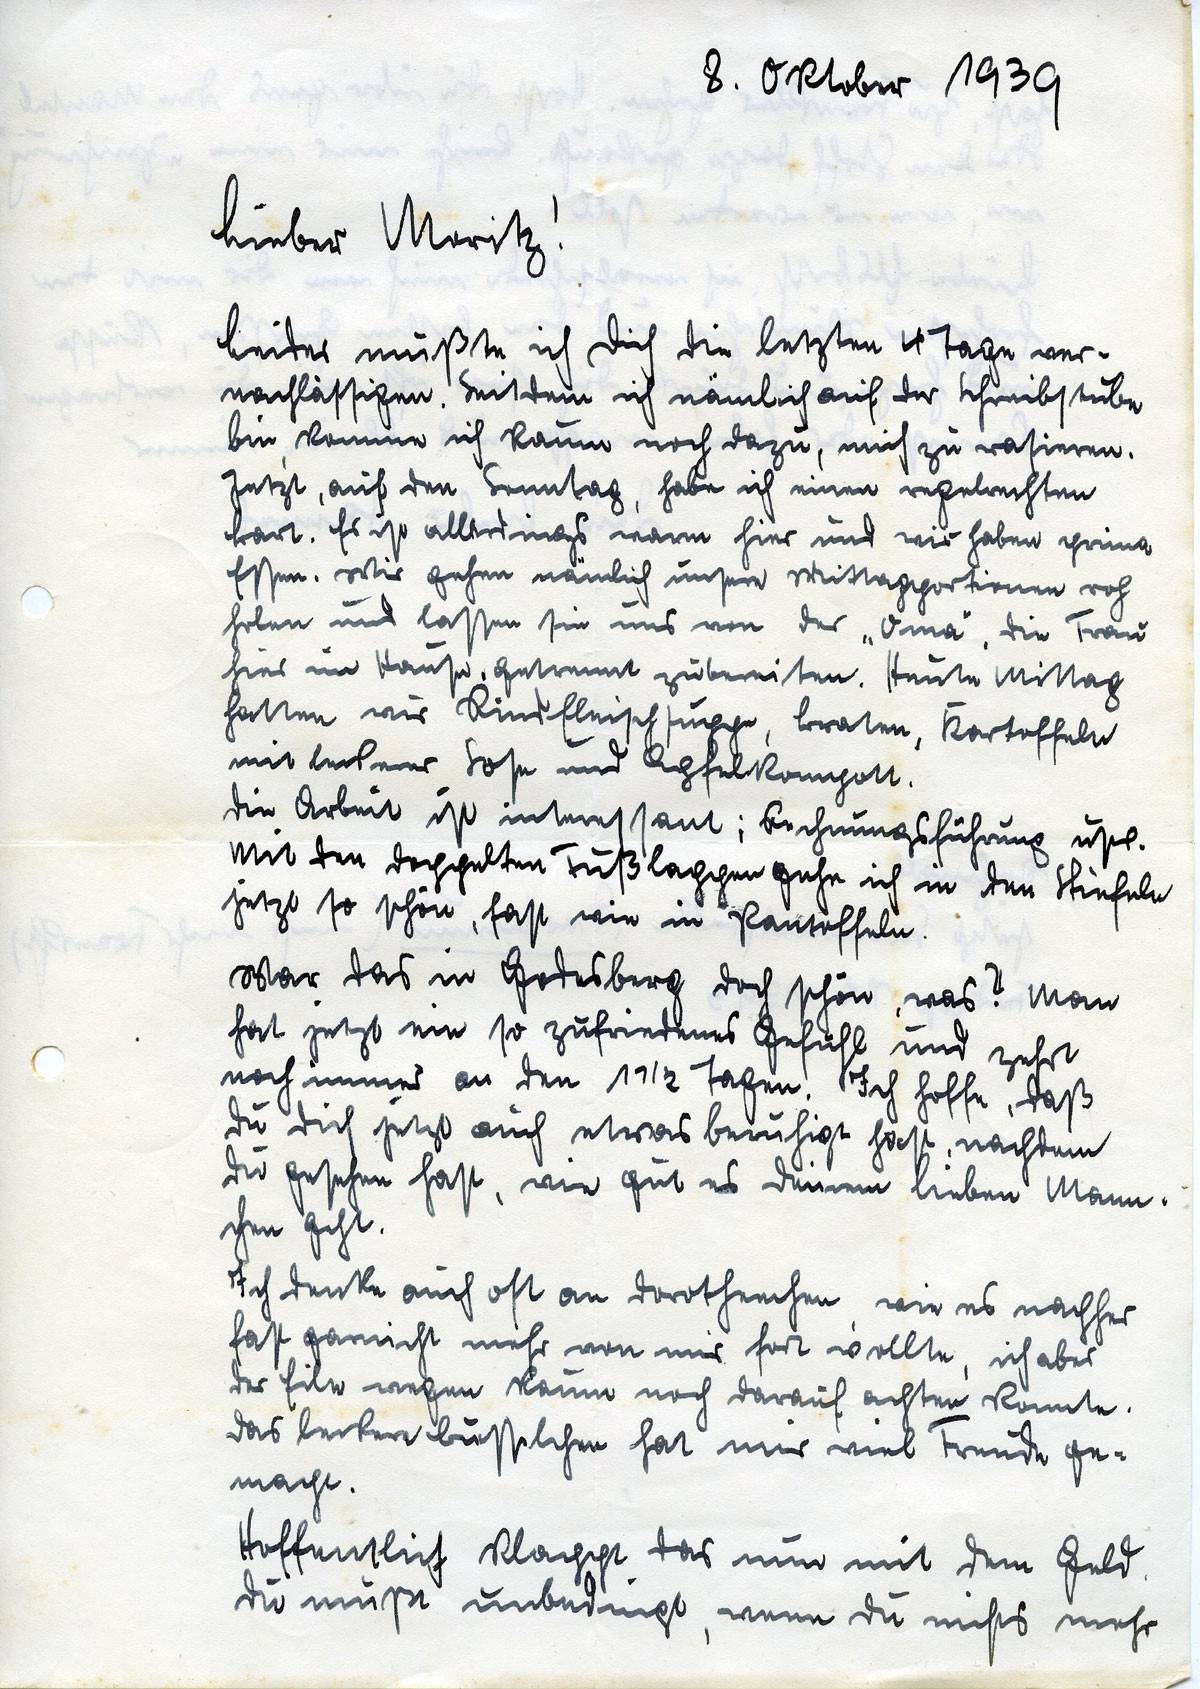 8. Oktober 1939
Lieber Moritz!
Leider mußte ich Dich die letzten 4 Tage ver-
nachlässigen. Seitdem ich nämlich auf der Schreibstube
bin, komme ich kaum noch dazu, mich zu rasieren.
Jetzt, auf den Sonntag, habe ich einen regelrechten
Bart. Es ist allerdings warm hier und wir haben prima
Essen. Wir gehen nämlich unsere Mittagportionen roh
holen und lassen sie uns von der „Oma", die Frau
hier im Hause, getrennt zubereiten. Heute Mittag
hatten wir Rindfleischsuppe, Braten, Kartoffeln
mit leckerer Sose und Apfelkompott.
Die Arbeit ist interessant; Rechnungsführung usw.
Mit den doppelten Fußlappen gehe ich in den Stiefeln
jetzt so schön, fast wie in Pantoffeln.
War das in Godesberg doch schön, was? Man
hat jetzt ein so zufriedenes Gefühl und zehrt
noch immer an den 1 1/2 Tagen. Ich hoffe, daß
Du Dich jetzt auch etwas beruhigt hast, nachdem
Du gesehen hast, wie gut es Deinem lieben Mann-
chen geht.
Ich denke auch oft an Dorotheechen, wie es nachher
fast garnicht mehr von mir fort wollte, ich aber
der Eile wegen kaum noch darauf achten konnte.
Das leckere Busselchen hat mir viel Freude ge-
macht.
Hoffentlich klappt das nun mit dem Geld.
Du mußt unbedingt, wenn Du nichts mehr